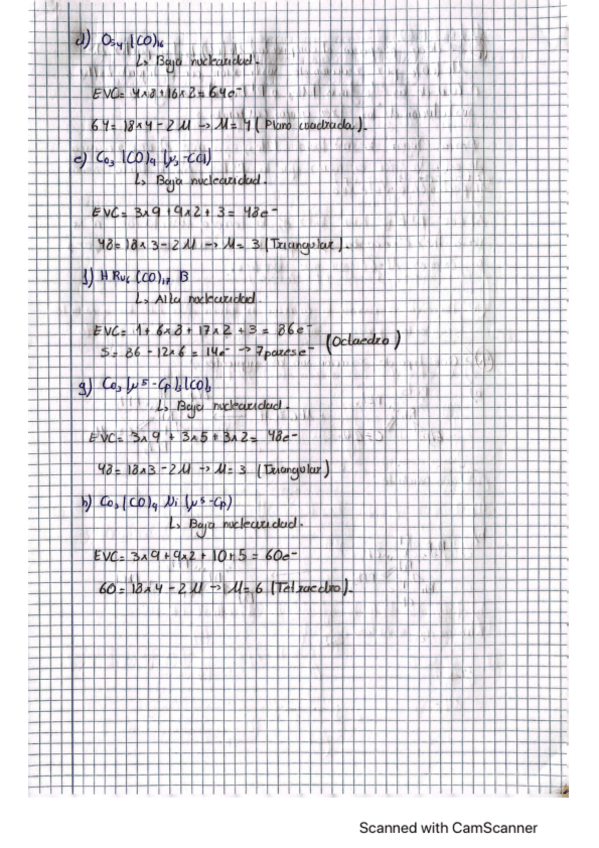 d) Os4 (CO)16
↳ Baja nuclearidad.
EVC= 4x8+16x2=64e-
64=18x4-2M → M=4 (Plano cuadrada).
e) Co3 (CO)9 (μ3-CCl)
↳ Baja nuclearidad.
EVC= 3x9+9x2+3= 48e-
48=18x3-2M → M= 3 (Triangular).
f) H Ru6 (CO)17 B
↳ Alta nuclearidad.
EVC= 1+6x8+17x2+3= 86e-
S= 86-12x6 = 14e- → 7parese- (Octaedro)
g) Co3 (μ5-Cp)3(CO)3
↳ Baja nuclearidad.
EVC= 3x9 + 3x5 + 3x2= 48e-
48=18x3-2M → M=3 (Triangular)
h) Co3(CO)9 Ni (μ5-Cp)
↳ Baja nuclearidad.
EVC= 3x9+9x2+10+5=60e-
60=18x4-2M → M=6 (Tetraedro).
Scanned with CamScanner